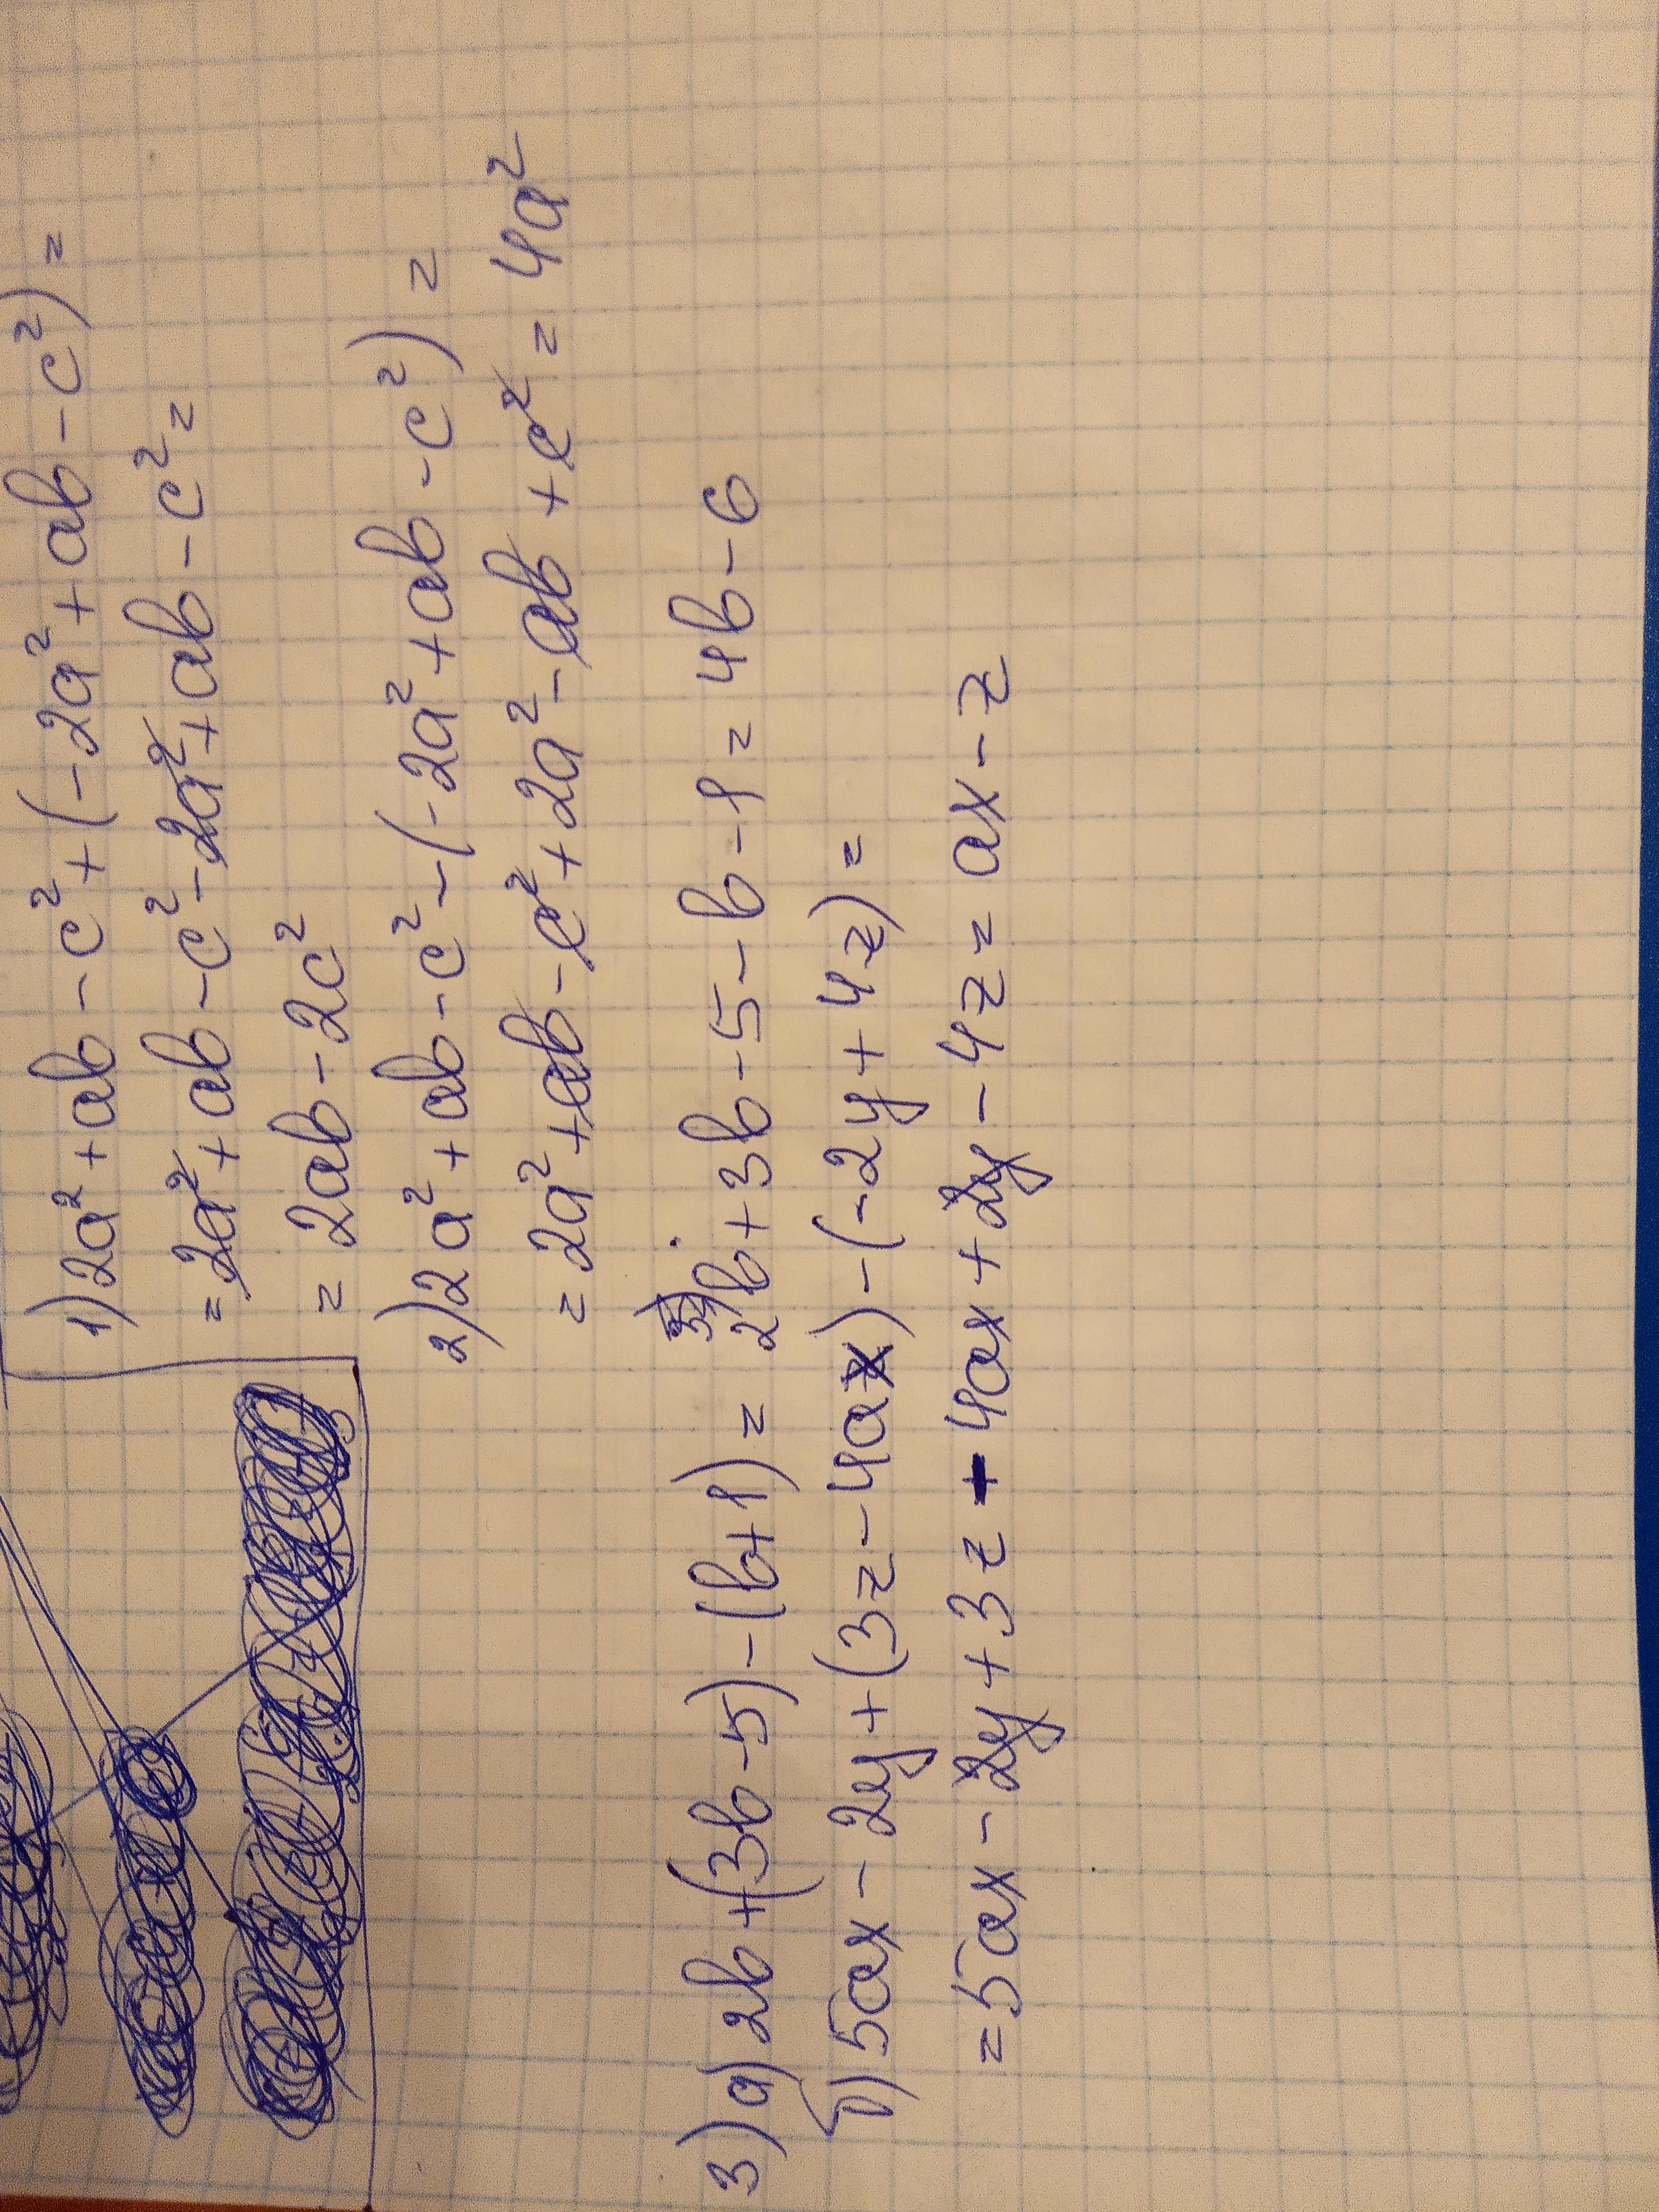 1) 2a² + ab - c² + (-2a² + ab - c²) =
= 2a² + ab - c² - 2a² + ab - c² =
= 2ab - 2c²
2) 2a² + ab - c² - (-2a² + ab - c²) =
= 2a² + ab - c² + 2a² - ab + c² = 4a²
3) а) 2b + (3b - 5) - (b + 1) = 2b + 3b - 5 - b - 1 = 4b - 6
б) 5ax - 2y + (3z - 4ax) - (-2y + 4z) =
= 5ax - 2y + 3z - 4ax + 2y - 4z = ax - z